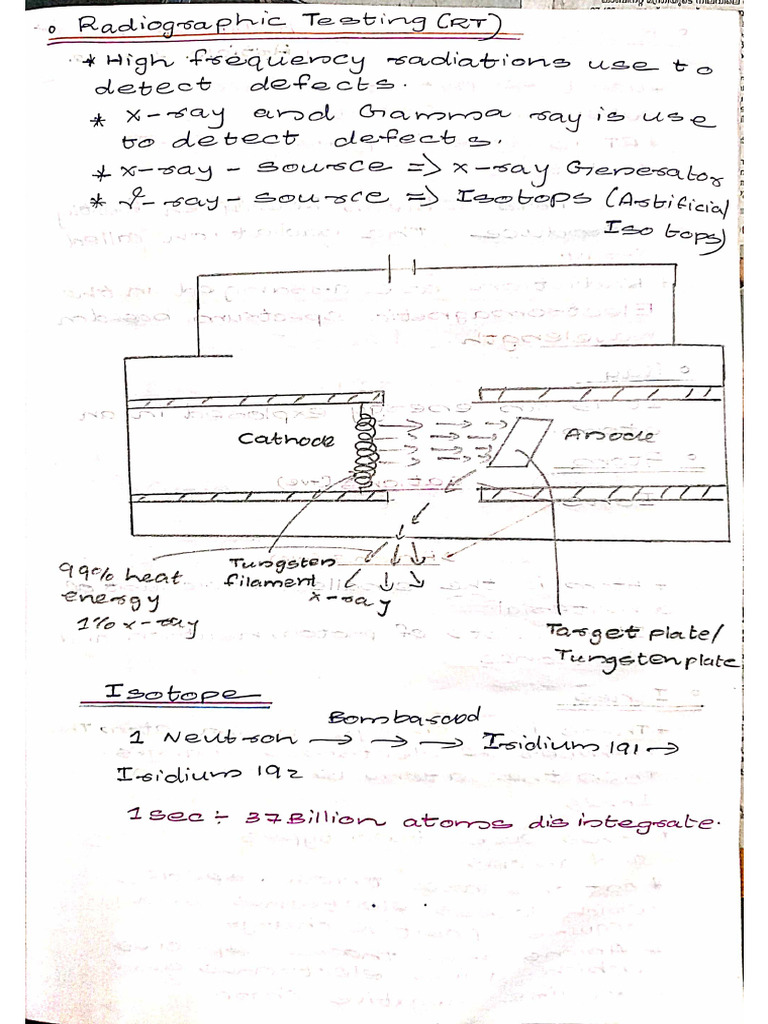 Radiographic Testing (RT)
* High frequency radiations use to
detect defects.
* X-ray and Gamma ray is use
to detect defects.
* x-ray - source => x-ray Generator
* γ-ray - source => Isotops (Artificial
Isotops)
Cathode
Anode
99% heat
energy
1% x-ray
Tungsten
filament
x-ray
Target plate/
Tungsten plate
Isotope
Bombarood
1 Neutron → → → Iridium 191 →
Iridium 192
1 sec ÷ 37 Billion atoms disintegrate.